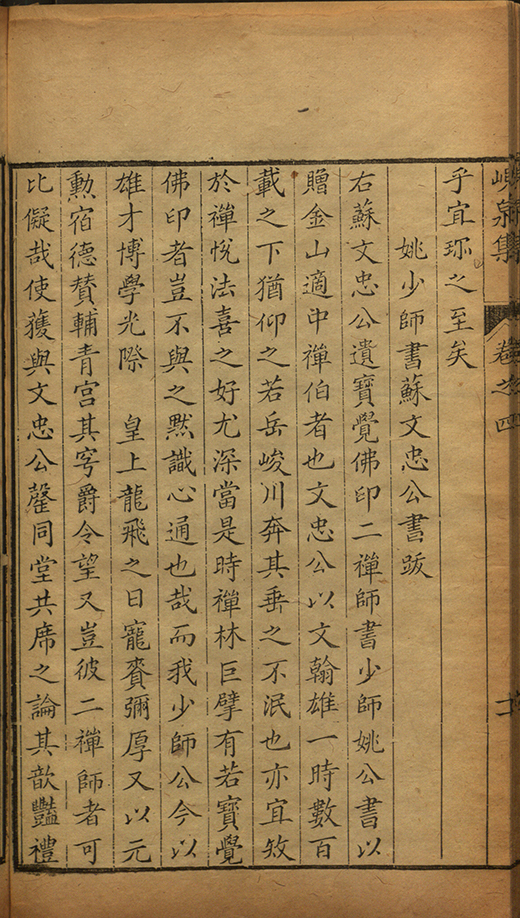 峴泉集 卷之四 二
乎宜珎之至矣
姚少師書蘇文忠公書跋
右蘇文忠公遺寶覺佛印二禪師書少師姚公書以
贈金山適中禪伯者也文忠公以文翰雄一時數百
載之下猶仰之若岳峻川奔其垂之不泯也亦宜矧
於禪悅法喜之好尤深當是時禪林巨擘有若寶覺
佛印者豈不與之黙識心通也哉而我少師公今以
雄才博學光際 皇上龍飛之日寵賚彌厚又以元
勳宿德賛輔青宮其穹爵令望又豈彼二禪師者可
比儗哉使獲與文忠公罄同堂共席之論其歆豔禮